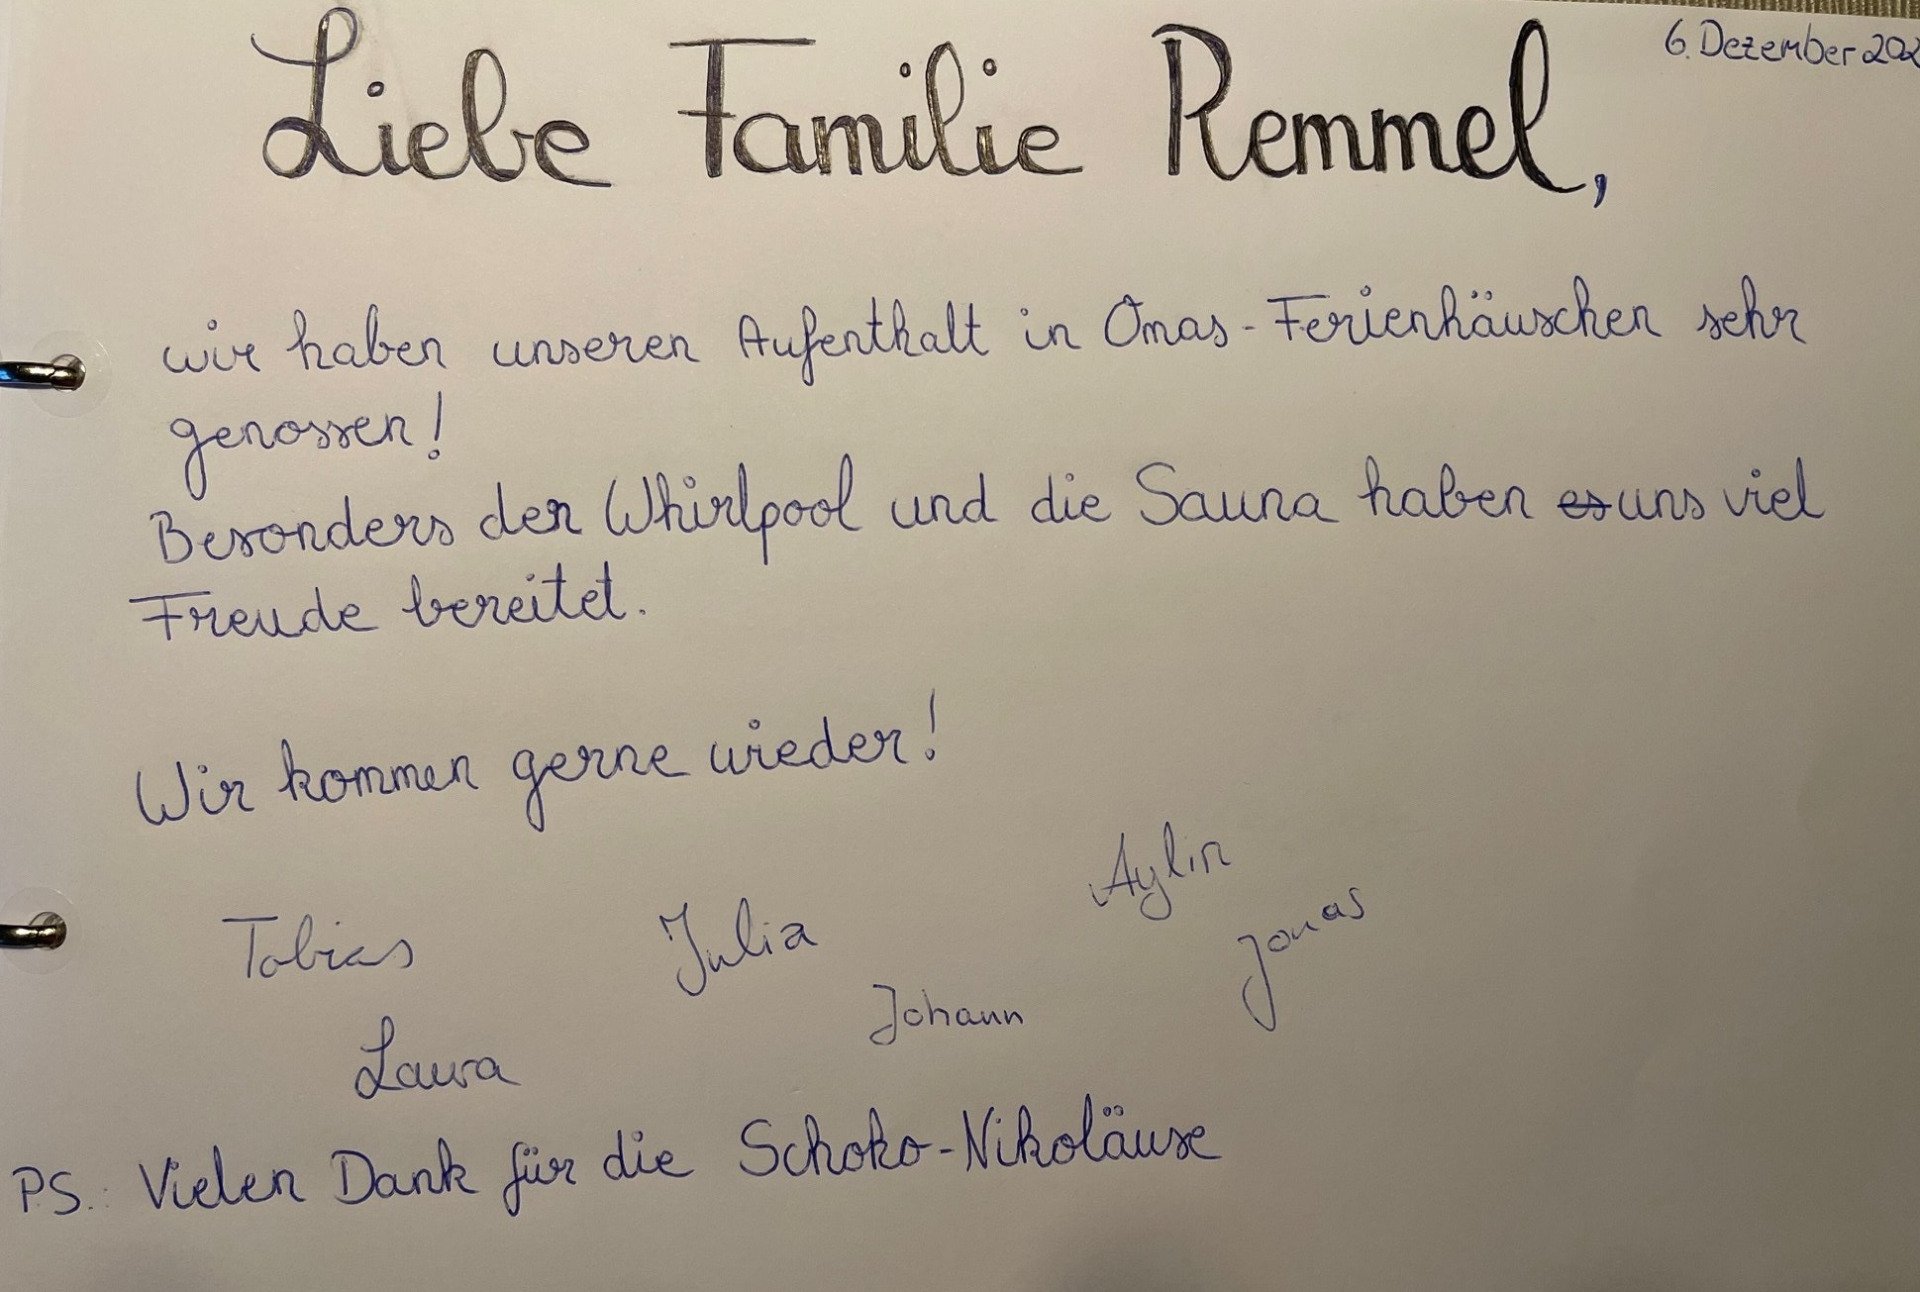 6. Dezember 202
Liebe Familie Remmel,
wir haben unseren Aufenthalt in Omas-Ferienhäuschen sehr
genossen!
Besonders der Whirlpool und die Sauna haben es uns viel
Freude bereitet.
Wir kommen gerne wieder!
Aylin
Tobias Julia Jonas
Johann
Laura
PS.: Vielen Dank für die Schoko-Nikoläuse